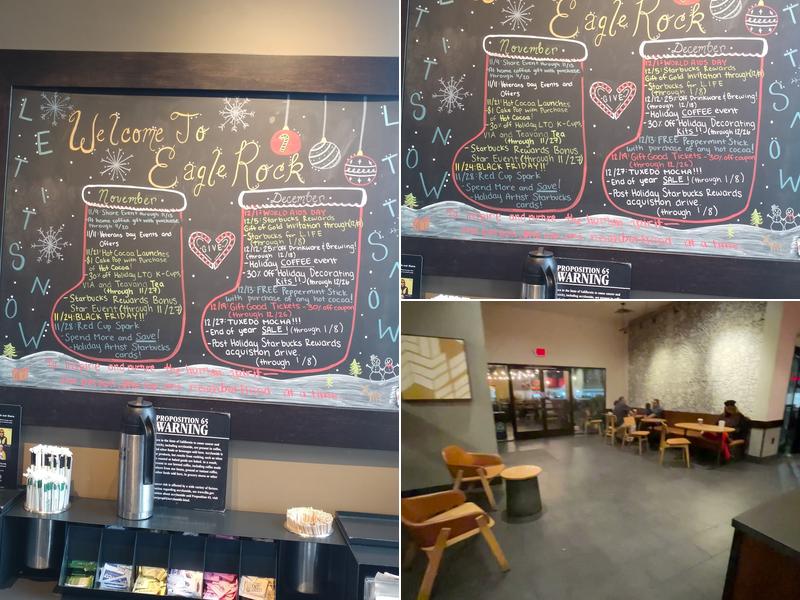 Welcome To
Eagle Rock
November
11/9 Share Event through 11/13
At home coffee gift with purchase
through 11/20
11/11 Veterans Day Events and
Offers
11/21 Hot Cocoa Launches
$1 Cake Pop with Purchase
of Hot Cocoa!
- 30% off Holiday LTO K-Cups,
VIA and Teavana Tea
(through 11/27)
- Starbucks Rewards Bonus
Star Event (through 11/27)
11/24: BLACK FRIDAY!!
11/28: Red Cup Spark
- Spend More and Save!
- Holiday Artist Starbucks
cards!
GIVE
December
12/1: WORLD AIDS DAY
12/5: Starbucks Rewards
Gift of Gold Invitation through(12/11)
- Starbucks for LIFE
(through 1/8)
12/12: 25% Off Drinkware & Brewing!
(through 12/18)
- Holiday COFFEE event
- 30% Off Holiday Decorating
Kits!! (through 12/26
12/13: FREE Peppermint Stick
with purchase of any hot cocoa!
12/19: Gift Good Tickets - 30% off coupon
(through 12/26)
12/27: TUXEDO MOCHA!!!
- End of year SALE! (through 1/8)
- Post Holiday Starbucks Rewards
acquisition drive.
(through 1/8)
To inspire and nurture the human spirit—
one person, one cup and one neighborhood at a time
PROPOSITION 65
WARNING
November
11/9 Share Event through 11/13
At home coffee gift with purchase
through 11/20
11/11 Veterans Day Events and
Offers
11/21 Hot Cocoa Launches
- $1 Cake Pop with Purchase
of Hot Cocoa!
- 30% off Holiday LTO K-Cups,
VIA and Teavana Tea
(through 11/27)
- Starbucks Rewards Bonus
Star Event (through 11/27)
11/24: BLACK FRIDAY!!
11/28: Red Cup Spark
- Spend More and Save!
- Holiday Artist Starbucks
cards!
Eagle Rock
GIVE
December
12/1: WORLD AIDS DAY
12/5: Starbucks Rewards
Gift of Gold Invitation through(12/11)
- Starbucks for LIFE
(through 1/8)
12/12: 25% Off Drinkware & Brewing!
(through 12/18)
- Holiday COFFEE event
- 30% Off Holiday Decorating
Kits!! (through 12/26
12/13: FREE Peppermint Stick
with purchase of any hot cocoa!
12/19: Gift Good Tickets - 30% off coupon
(through 12/26)
12/27: TUXEDO MOCHA!!!
- End of year SALE! (through 1/8)
- Post Holiday Starbucks Rewards
acquisition drive.
(through 1/8)
PROPOSITION 65
WARNING